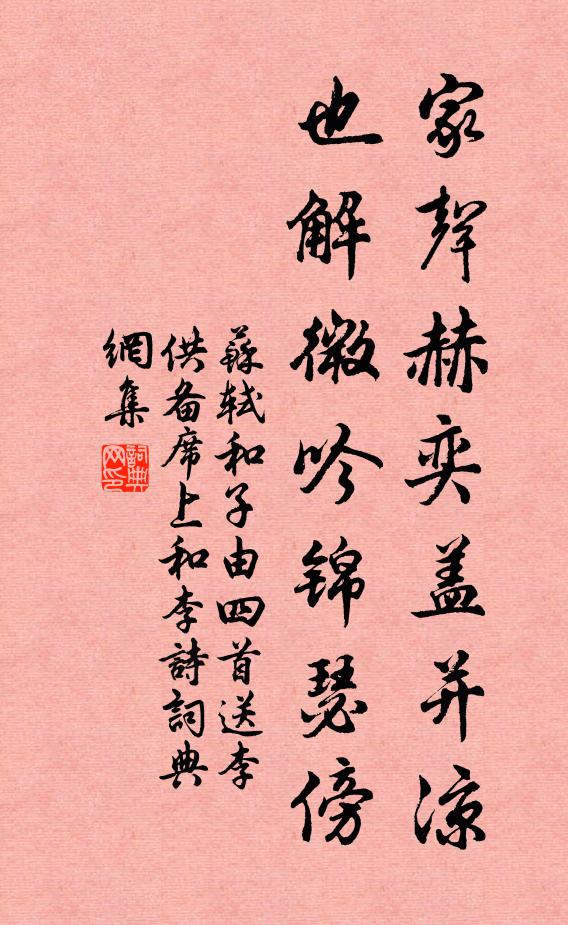 家聲赫奕盖并涼
也解微吟錦瑟傍
蘇軾和子由四首送李
供备席上和李詩詞典
網集
詞典
网印